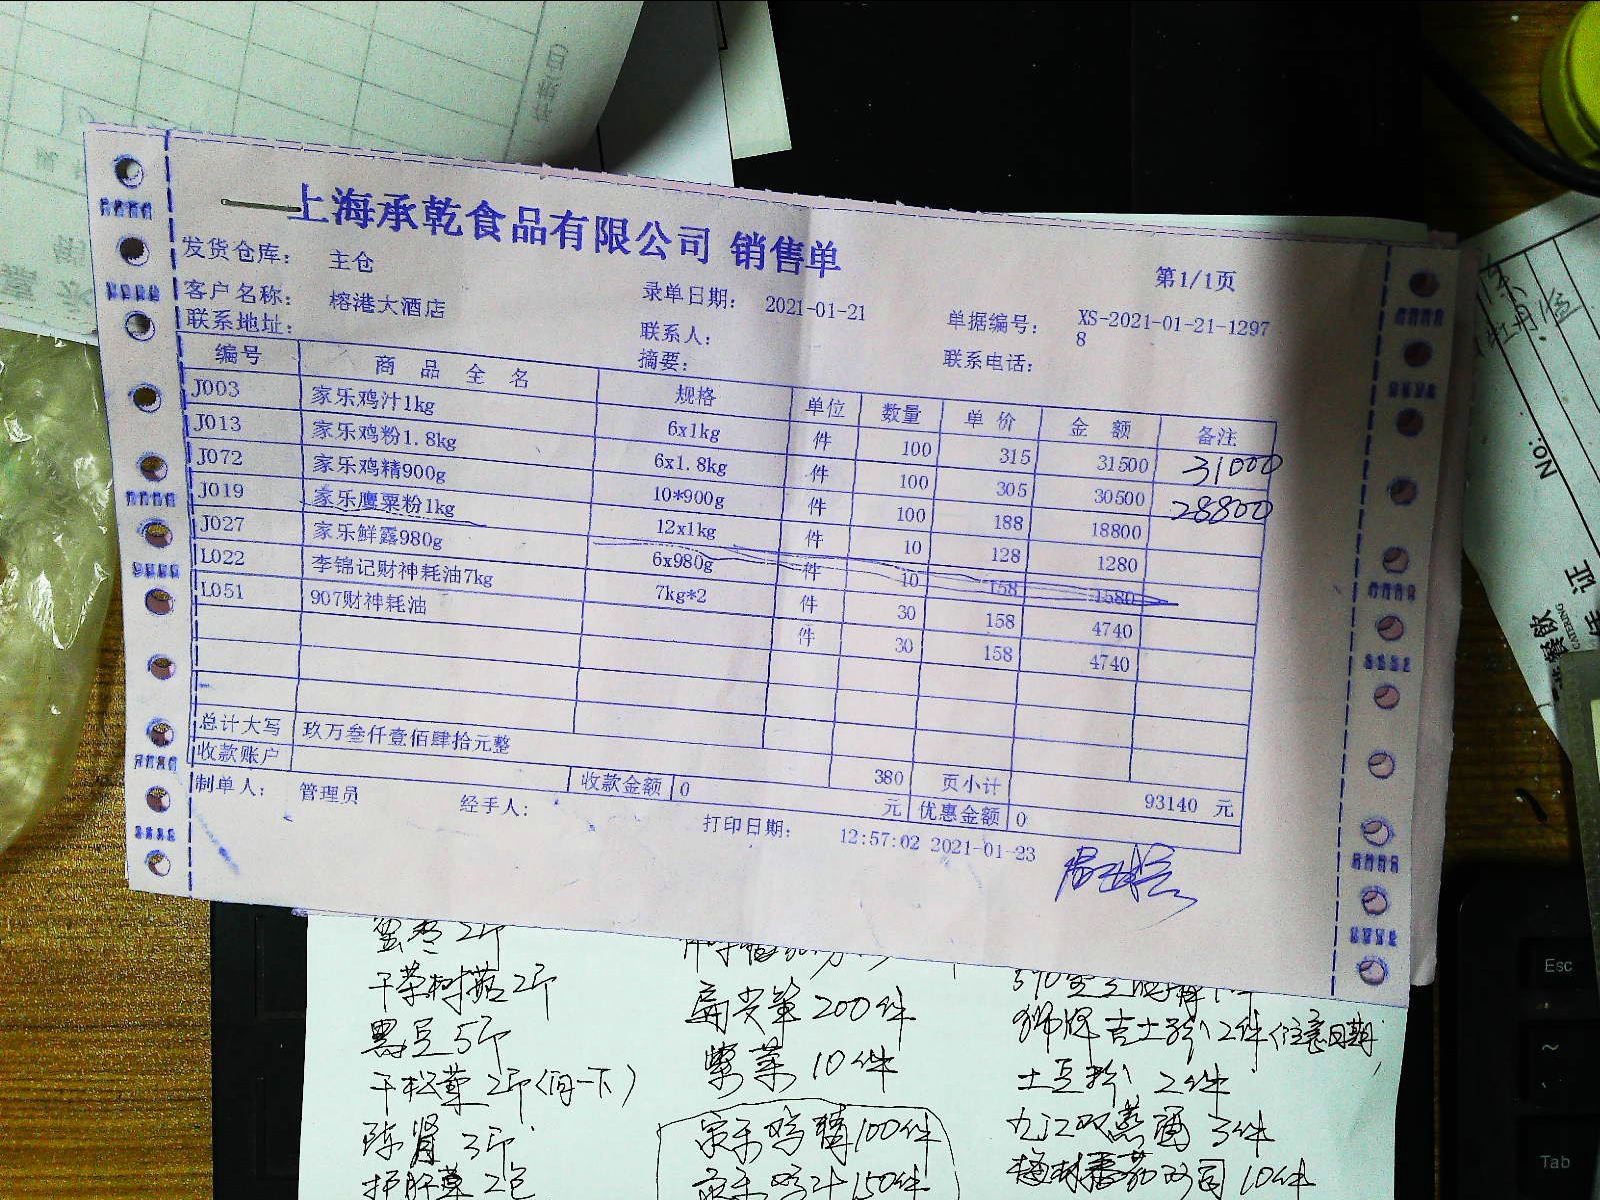 上海承乾食品有限公司 销售单
第1/1页
发货仓库： 主仓
客户名称： 榕港大酒店 录单日期： 2021-01-21 单据编号： XS-2021-01-21-12978
联系地址： 联系人： 联系电话：
摘要：
编号 商品全名 规格 单位 数量 单价 金额 备注
J003 家乐鸡汁1kg 6x1kg 件 100 315 31500 31000
J013 家乐鸡粉1.8kg 6x1.8kg 件 100 305 30500 28800
J072 家乐鸡精900g 10*900g 件 100 188 18800
J019 家乐鹰粟粉1kg 12x1kg 件 10 128 1280
J027 家乐鲜露980g 6x980g 件 10 158 1580
L022 李锦记财神耗油7kg 7kg*2 件 30 158 4740
L051 907财神耗油 件 30 158 4740
总计大写 玖万叁仟壹佰肆拾元整 380 页小计 93140 元
收款账户 收款金额 0 元 优惠金额 0
制单人： 管理员 经手人： 打印日期： 12:57:02 2021-01-23
蜜枣 2斤
干茶树菇 2斤
黑豆 5斤
干松茸 2斤（问一下）
陈肾 3斤
扁尖笋 200件
紫菜 10件
家乐鸡精 100件
家乐鸡汁 150件
狮牌吉士粉 2件（注意日期
土豆粉 2件
九江双蒸酒 3件
10件
No:
证
餐饮
CATERING
牡丹
Esc
~
Tab